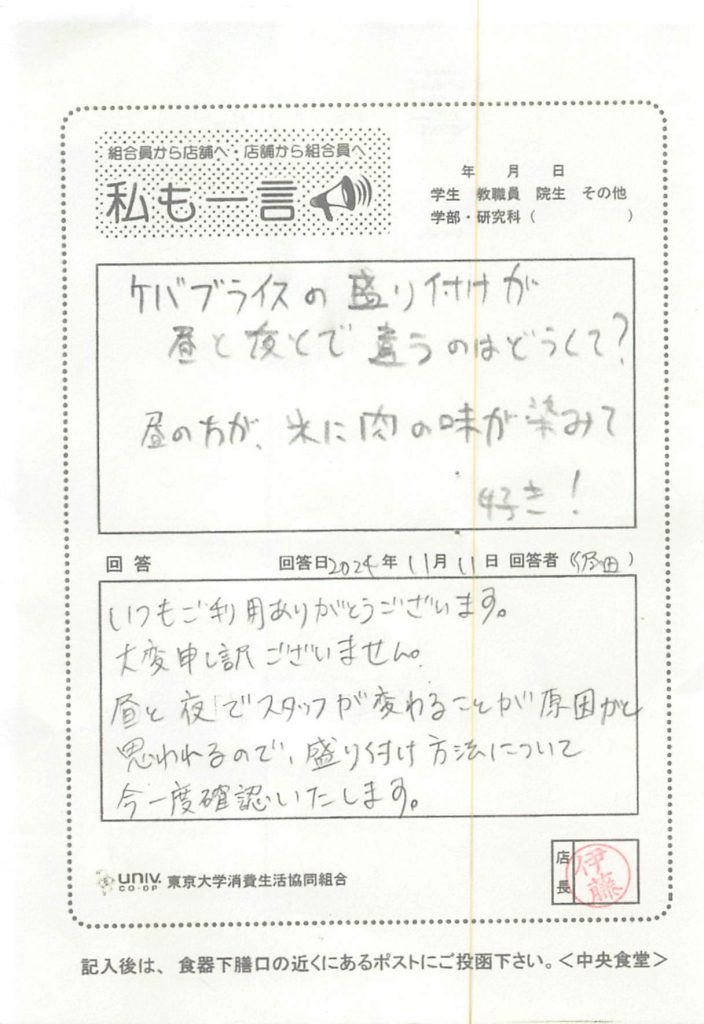 組合員から店舗へ・店舗から組合員へ
私も一言
年 月 日
学生 教職員 院生 その他
学部・研究科( )
ケバブライスの盛り付けが
昼と夜とで違うのはどうして?
昼の方が、米に肉の味が染みて
好き!
回答 回答日2024年11月11日 回答者( 田)
いつもご利用ありがとうございます。
大変申し訳ございません。
昼と夜でスタッフが変わることが原因かと
思われるので、盛り付け方法について
今一度確認いたします。
UNIV.
CO-OP
東京大学消費生活協同組合
店長
伊藤
記入後は、食器下膳口の近くにあるポストにご投函下さい。<中央食堂>